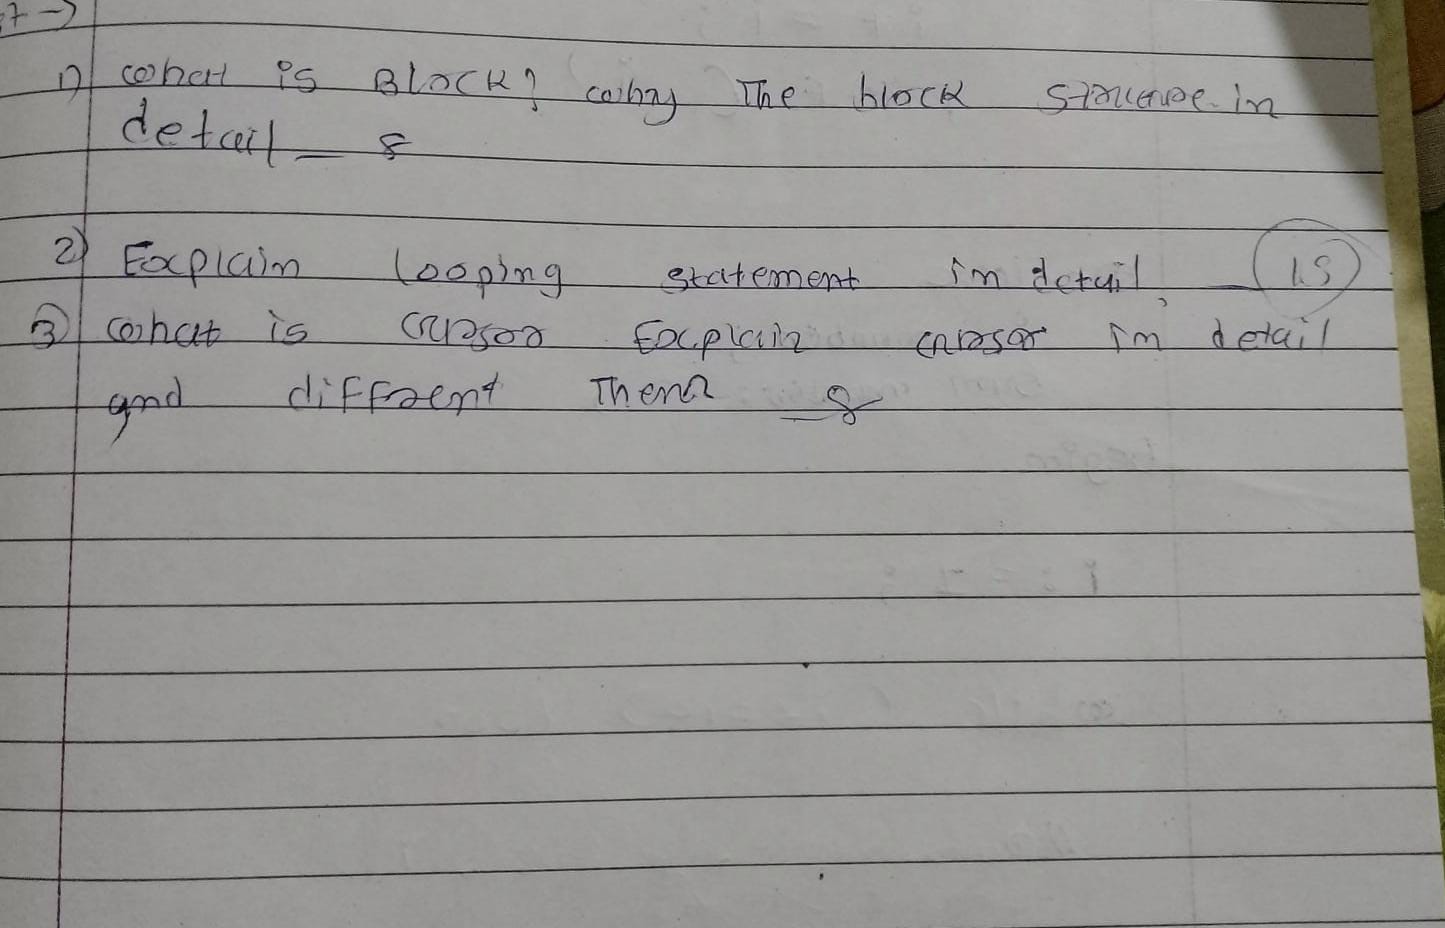 1) What is Block? Why The block structure in
detail - 8
2) Explain looping statement in detail - 15
3) What is cursor Explain cursor in detail
and diffrent Them
- 8